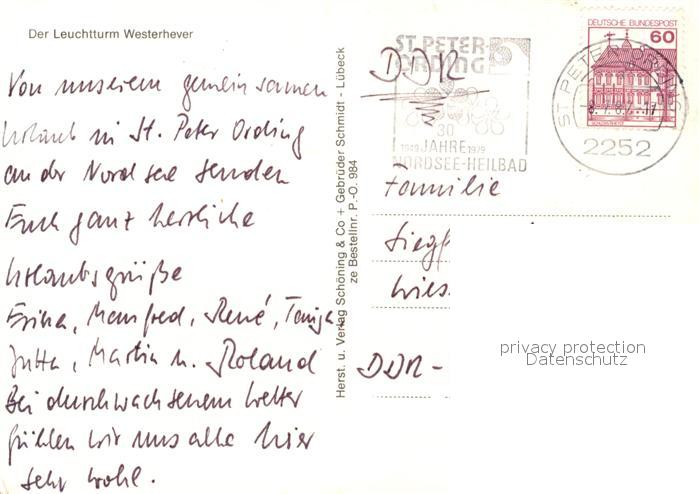 Der Leuchtturm Westerhever
Von unserem gemeinsamen
Urlaub in St. Peter Ording
an der Nordsee senden
Euch ganz herzliche
Urlaubsgrüße
Erika, Manfred, René, Tanja
Jutta, Martin u. Roland
Bei durchwachsenem Wetter
fühlen wir uns alle hier
sehr wohl.
Herst. u. Verlag Schöning & Co + Gebrüder Schmidt - Lübeck
ze Bestellnr. P.-O. 984
DDR
ST. PETER-
ORDING
30
1949 JAHRE 1979
NORDSEE-HEILBAD
DEUTSCHE BUNDESPOST
60
ST. PETER-ORDING
2252
Familie
DDR -
privacy protection
Datenschutz